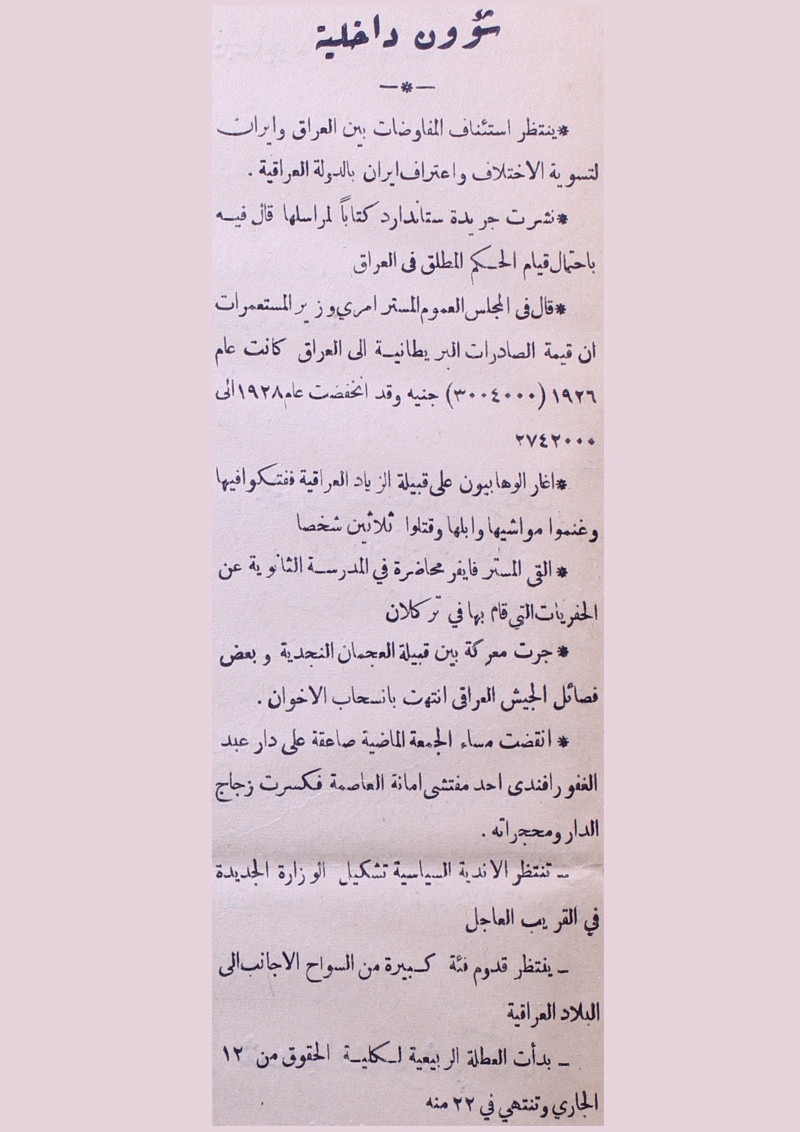 شؤون داخلية
—*—
*ينتظر استئناف المفاوضات بين العراق وايران
لتسوية الاختلاف واعتراف ايران بالدولة العراقية .
*نشرت جريدة ستاندارد كتاباً لمراسلها قال فيه
باحتمال قيام الحكم المطلق فى العراق
*قال فى المجلس العموم المستر امري وزير المستعمرات
ان قيمة الصادرات البريطانية الى العراق كانت عام
١٩٢٦ (٣٠٠٤٠٠٠) جنيه وقد انخفضت عام ١٩٢٨ الى
٢٧٤٢٠٠٠
*اغار الوهابيون على قبيلة الزياد العراقية ففتكوا فيها
وغنموا مواشيها وابلها وقتلوا ثلاثين شخصا
* القى المستر فايفر محاضرة في المدرسة الثانوية عن
الحفريات التي قام بها في تركلان
* جرت معركة بين قبيلة العجمان النجدية وبعض
فصائل الجيش العراقى انتهت بانسحاب الاخوان .
* انقضت مساء الجمعة الماضية صاعقة على دار عبد
الغفور افندى احد مفتشى امانة العاصمة فكسرت زجاج
الدار ومحجراته .
ـ تنتظر الاندية السياسية تشكيل الوزارة الجديدة
في القريب العاجل
ـ ينتظر قدوم فئة كبيرة من السواح الاجانب الى
البلاد العراقية
ـ بدأت العطلة الربيعية لكلية الحقوق من ١٢
الجاري وتنتهي في ٢٢ منه